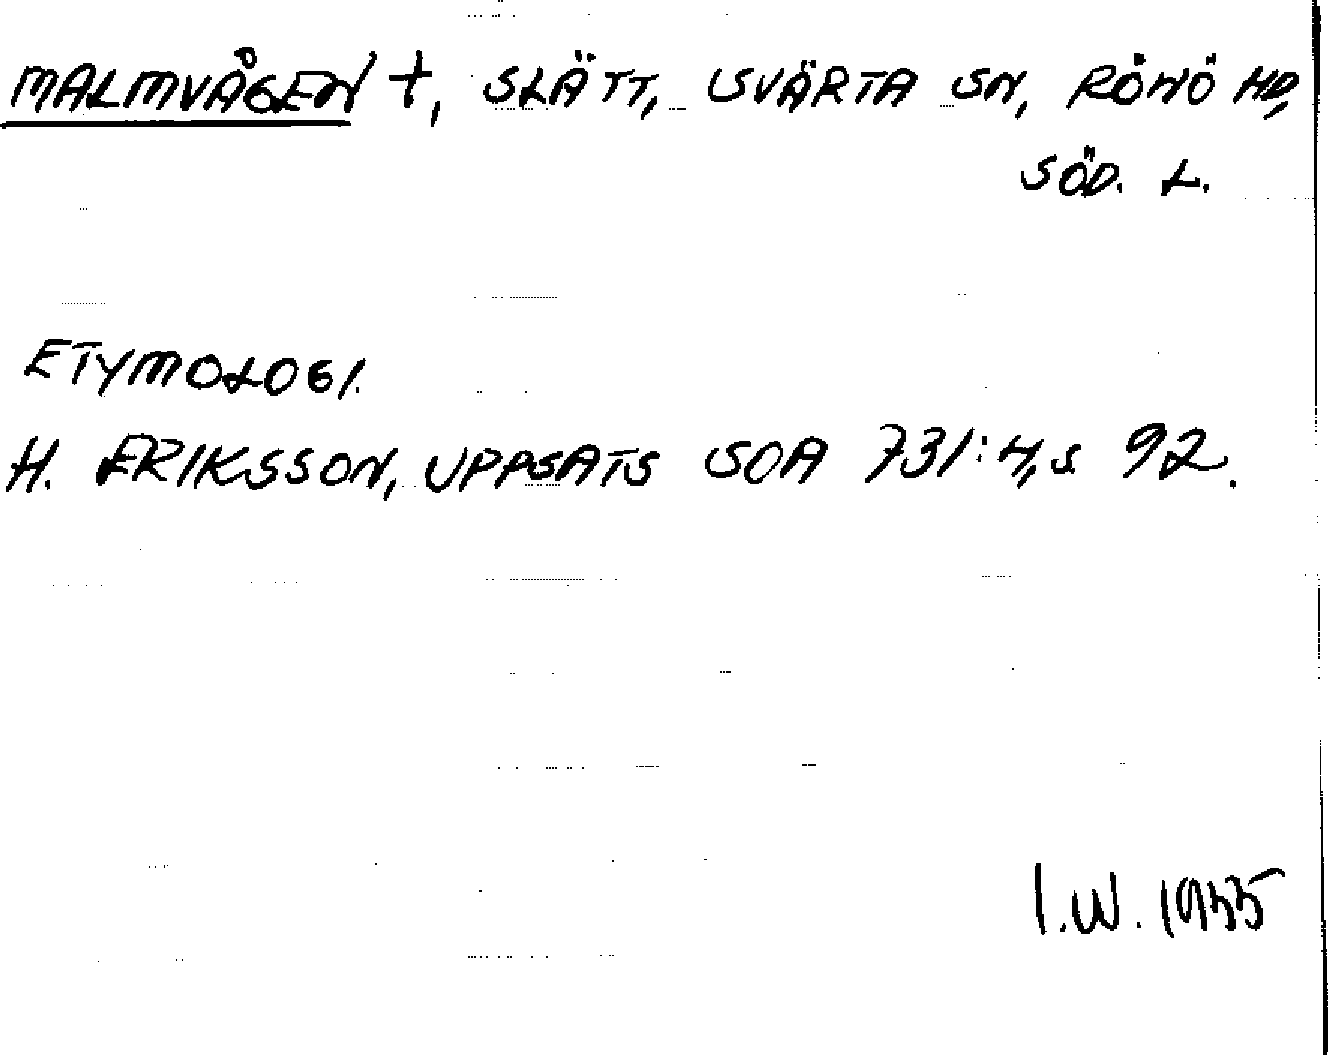 MALMVÅGEN †, SLÄTT, SVÄRTA SN, RÖNÖ HD,
SÖD. L.
ETYMOLOGI.
H. ERIKSSON, UPPSATS SOA 731:4, S 92.
I.W. 1955